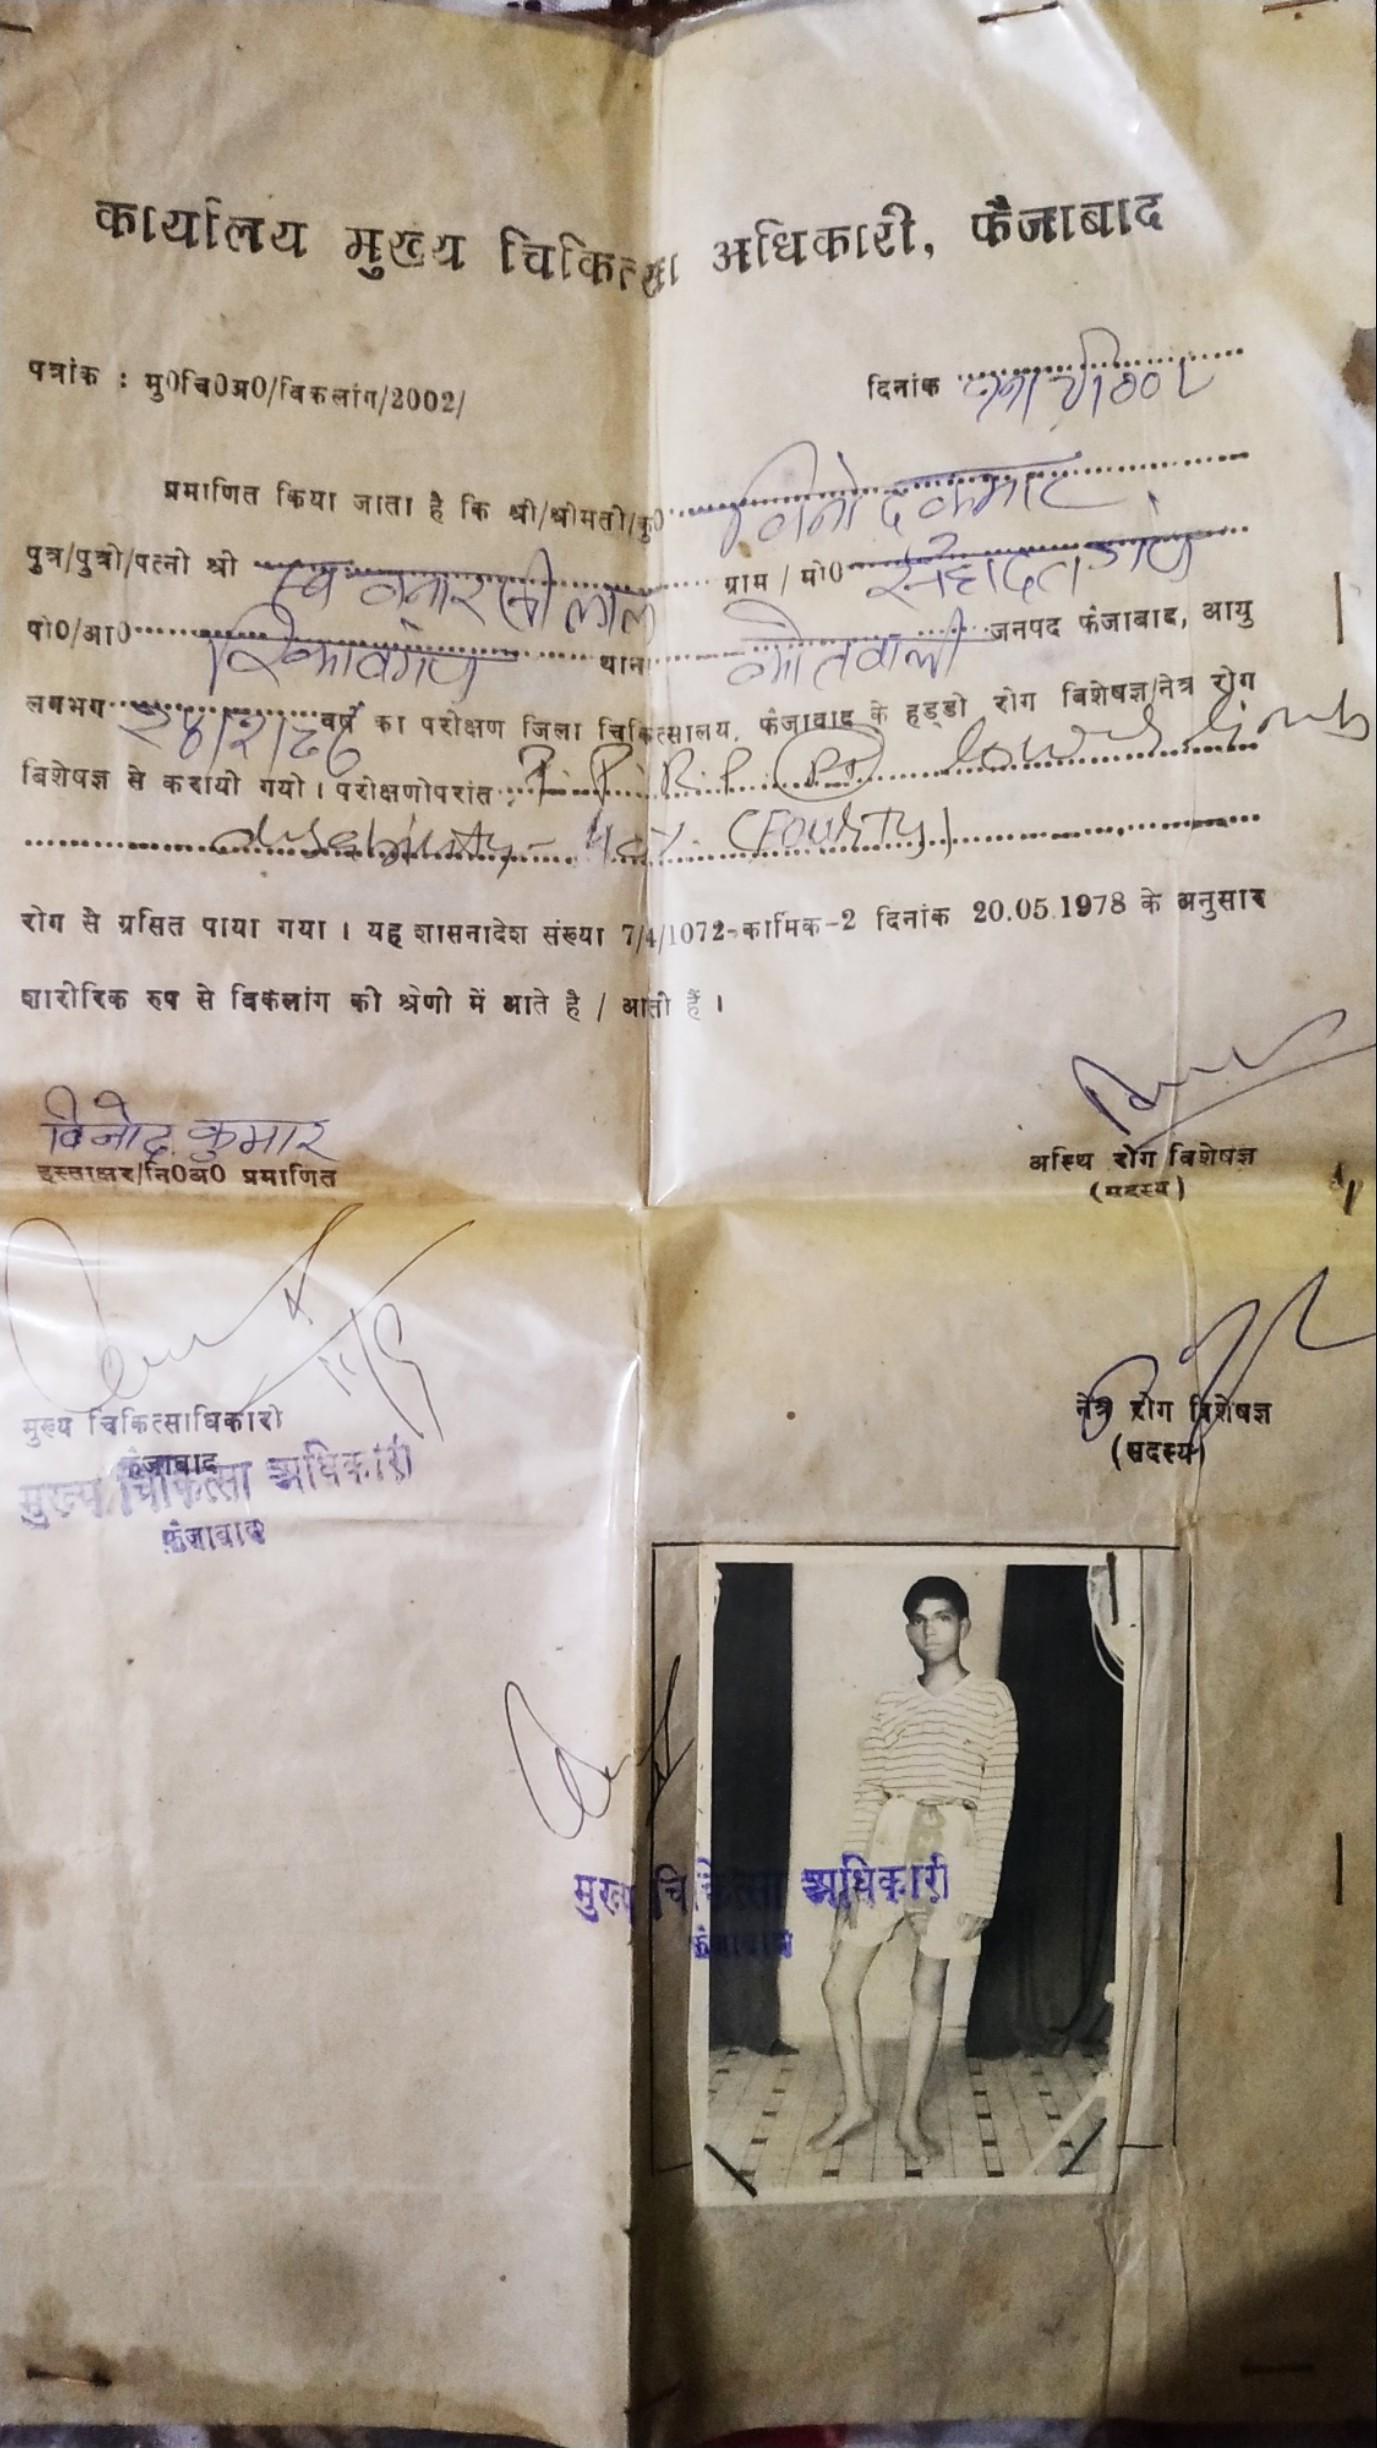 कार्यालय मुख्य चिकित्सा अधिकारी, फैजाबाद
पत्रांक : मु0चि0अ0/विकलांग/2002/
दिनांक
प्रमाणित किया जाता है कि श्री/श्रीमती/कु0 विनोद कुमार
पुत्र/पुत्री/पत्नी श्री स्व बनारसी लाल ग्राम / मो0 सहादतगंज
पो0/आ0 रिकाबगंज थाना कोतवाली जनपद फैजाबाद, आयु
लगभग वर्ष का परीक्षण जिला चिकित्सालय, फैजाबाद के हड्डी रोग विशेषज्ञ/नेत्र रोग
विशेषज्ञ से करायी गयी । परीक्षणोपरांत P.P.R.P. Lower Limb
disability - 40% (FOURTY)
रोग से ग्रसित पाया गया । यह शासनादेश संख्या 7/4/1072-कार्मिक-2 दिनांक 20.05.1978 के अनुसार
शारीरिक रुप से विकलांग की श्रेणी में आते है / आती हैं ।
विनोद कुमार
हस्ताक्षर/नि0अ0 प्रमाणित
अस्थि रोग विशेषज्ञ
(सदस्य)
मुख्य चिकित्साधिकारी
फैजाबाद
मुख्य चिकित्सा अधिकारी
फैजाबाद
नेत्र रोग विशेषज्ञ
(सदस्य)
मुख्य चिकित्सा अधिकारी
फैजाबाद